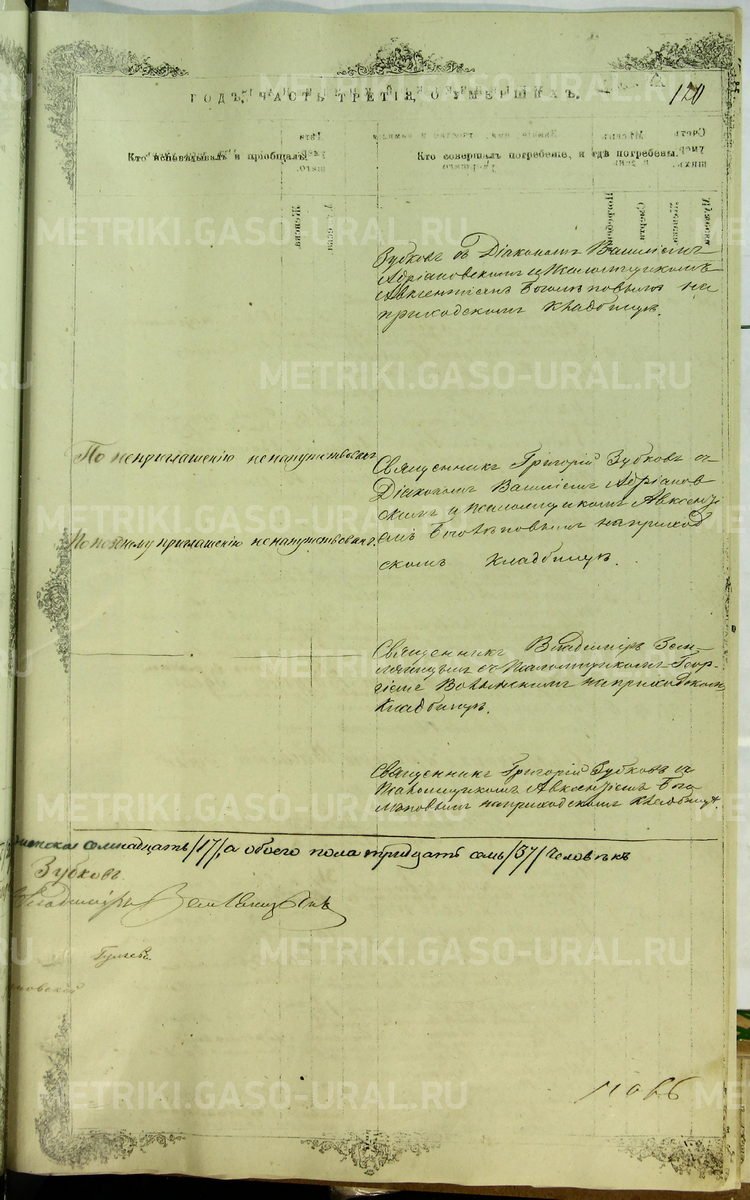 120
ГОДЪ, ЧАСТЬ ТРЕТІЯ, О УМЕРШИХЪ.
Кто исповѣдывалъ и пріобщалъ.
Кто совершалъ погребеніе, и гдѣ погребены.
Зубковъ съ Діакономъ Василіемъ
Адріановскимъ и псаломщикомъ
Авксентіемъ Боголѣповымъ на
приходскомъ кладбищѣ.
По неприглашенію ненапутствованъ
Священникъ Григорій Зубковъ съ
Діакономъ Василіемъ Адріанов
скимъ и псаломщикомъ Авксенті
емъ Боголѣповымъ на приход
скомъ кладбищѣ.
По позднему приглашенію ненапутствован.
Священникъ Владиміръ Зем-
ляницынъ съ Псаломщикомъ Геор-
гіемъ Волынскимъ на приходском
Кладбищѣ.
Священникъ Григорій Зубковъ съ
Псаломщикомъ Авксентіемъ Бого
лѣповымъ на приходскомъ кладбищѣ.
женска семнадцать /17/, а обоего пола тридцать семь /37/ человѣкъ
Зубковъ
Владиміръ Земляницынъ
METRIKI.GASO-URAL.RU